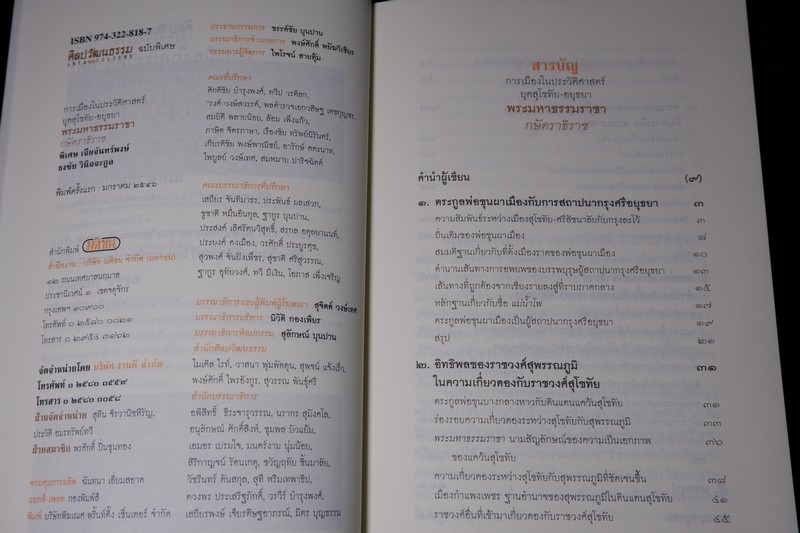 ISBN 974-322-818-7
ศิลปวัฒนธรรม ฉบับพิเศษ
การเมืองในประวัติศาสตร์
ยุคสุโขทัย-อยุธยา
พระมหาธรรมราชา
กษัตราธิราช
พิเศษ เจียจันทร์พงษ์
ธงชัย วินิจจะกูล
พิมพ์ครั้งแรก : มกราคม ๒๕๔๖
สำนักพิมพ์ มติชน
สำนักงาน : บริษัท มติชน จำกัด (มหาชน)
๑๒ ถนนเทศบาลนฤมาล
ประชานิเวศน์ ๑ เขตจตุจักร
กรุงเทพฯ ๑๐๙๐๐
โทรศัพท์ ๐ ๒๕๘๐ ๐๐๒๑
โทรสาร ๐ ๒๙๕๔ ๓๑๖๒
จัดจำหน่ายโดย บริษัท งานดี จำกัด
โทรศัพท์ ๐ ๒๕๘๐ ๐๕๕๙
โทรสาร ๐ ๒๕๘๐ ๐๐๕๘
ฝ่ายจัดจำหน่าย สุทิน จิรวานิชหิรัญ,
ประวัติ อมรทรัพย์ทวี
ฝ่ายสมาชิก พรศักดิ์ ปิ่นขุนทอง
ควบคุมการผลิต ฉันทนา เอี่ยมสอาด
แยกสี-เพลต กองพิมพ์สี
พิมพ์ บริษัทพิฆเณศ พริ้นท์ติ้ง เซ็นเตอร์ จำกัด
ประธานกรรมการ ขรรค์ชัย บุนปาน
บรรณาธิการอำนวยการ พงษ์ศักดิ์ พยัฆวิเชียร
กรรมการผู้จัดการ ไพโรจน์ สายทุ้ม
คณะที่ปรึกษา
ศักดิชัย บำรุงพงศ์, ทวีป วรดิลก,
รงค์ วงษ์สวรรค์, พลตำรวจเอกวสิษฐ เดชกุญชร,
สมบัติ พลายน้อย, ล้อม เพ็งแก้ว,
ภาษิต จิตรภาษา, เรืองชัย ทรัพย์นิรันดร์,
เกียรติชัย พงษ์พาณิชย์, อารักษ์ คคะนาท,
ไพบูลย์ วงษ์เทศ, สมหมาย ปาริจฉัตต์
คณะบรรณาธิการที่ปรึกษา
เสถียร จันทิมาธร, ประพันธ์ ผลเสวก,
ชูชาติ หมื่นอินกุล, ฐากูร บุนปาน,
ประสงค์ เลิศรัตนวิสุทธิ์, สรกล อดุลยานนท์,
ประยงค์ คงเมือง, วรศักดิ์ ประยูรศุข,
สุวพงศ์ จั่นฝังเพ็ชร, สุชาติ ศรีสุวรรณ,
ฐากูร อุทัยวงศ์, ทวี มีเงิน, โอภาส เพ็งเจริญ
บรรณาธิการและผู้พิมพ์ผู้โฆษณา สุจิตต์ วงษ์เทศ
บรรณาธิการบริหาร นิวัติ กองเพียร
บรรณาธิการศิลปกรรม สุลักษณ์ บุนปาน
สำนักศิลปวัฒนธรรม
ไมเคิล ไรท์, วาสนา พุ่มพัดคุน, สุพจน์ แจ้งเร็ว,
พงษ์ศักดิ์ ไพรอังกูร, สุวรรณ พันธุ์ศรี
สำนักบรรณาธิการ
อพิสิทธิ์ ธีระจารุวรรณ, นรากร สุมังคโล,
อนุลักษณ์ ศักดิ์สิงห์, ชุมพล บัวแย้ม,
เอมอร เปรมใจ, มนตรีงาม นุ่มน้อย,
สิริกาญจน์ รัตนเกตุ, ขวัญฤทัย ชื่นมาลัย,
วัชรินทร์ ตันสกุล, สุที หริมเทพาธิป,
ดวงพร ประเสริฐภักดิ์, วรวีร์ บำรุงพงศ์,
เสถียรพงษ์ เจียรดิษฐอาภรณ์, มิตร บุญธรรม
สารบัญ
การเมืองในประวัติศาสตร์
ยุคสุโขทัย-อยุธยา
พระมหาธรรมราชา
กษัตราธิราช
คำนำผู้เขียน (๗)
๑. ตระกูลพ่อขุนผาเมืองกับการสถาปนากรุงศรีอยุธยา ๓
ความสัมพันธ์ระหว่างเมืองสุโขทัย-ศรีสัชนาลัยกับกรุงละโว้ ๓
ถิ่นเดิมของพ่อขุนผาเมือง ๘
สมมติฐานเกี่ยวกับที่ตั้งเมืองราดของพ่อขุนผาเมือง ๑๐
ตำนานเส้นทางการอพยพของบรรพบุรุษผู้สถาปนากรุงศรีอยุธยา ๑๓
เส้นทางที่ถูกต้องจากเชียงรายลงสู่ที่ราบภาคกลาง ๑๕
หลักฐานเกี่ยวกับชื่อ แม่น้ำโพ ๑๗
ตระกูลพ่อขุนผาเมืองเป็นผู้สถาปนากรุงศรีอยุธยา ๑๙
สรุป ๒๑
๒. อิทธิพลของราชวงศ์สุพรรณภูมิ ๓๑
ในความเกี่ยวดองกับราชวงศ์สุโขทัย
ตระกูลพ่อขุนบางกลางหาวกับดินแดนแคว้นสุโขทัย ๓๑
ร่องรอยความเกี่ยวดองระหว่างสุโขทัยกับสุพรรณภูมิ ๓๓
พระมหาธรรมราชา นามสัญลักษณ์ของความเป็นเอกภาพ ๓๖
ของแคว้นสุโขทัย
ความเกี่ยวดองระหว่างสุโขทัยกับสุพรรณภูมิที่ชัดเจนขึ้น ๓๘
เมืองกำแพงเพชร ฐานอำนาจของสุพรรณภูมิในดินแดนสุโขทัย ๔๑
ราชวงศ์อื่นที่เข้ามาเกี่ยวดองกับราชวงศ์สุโขทัย ๔๕